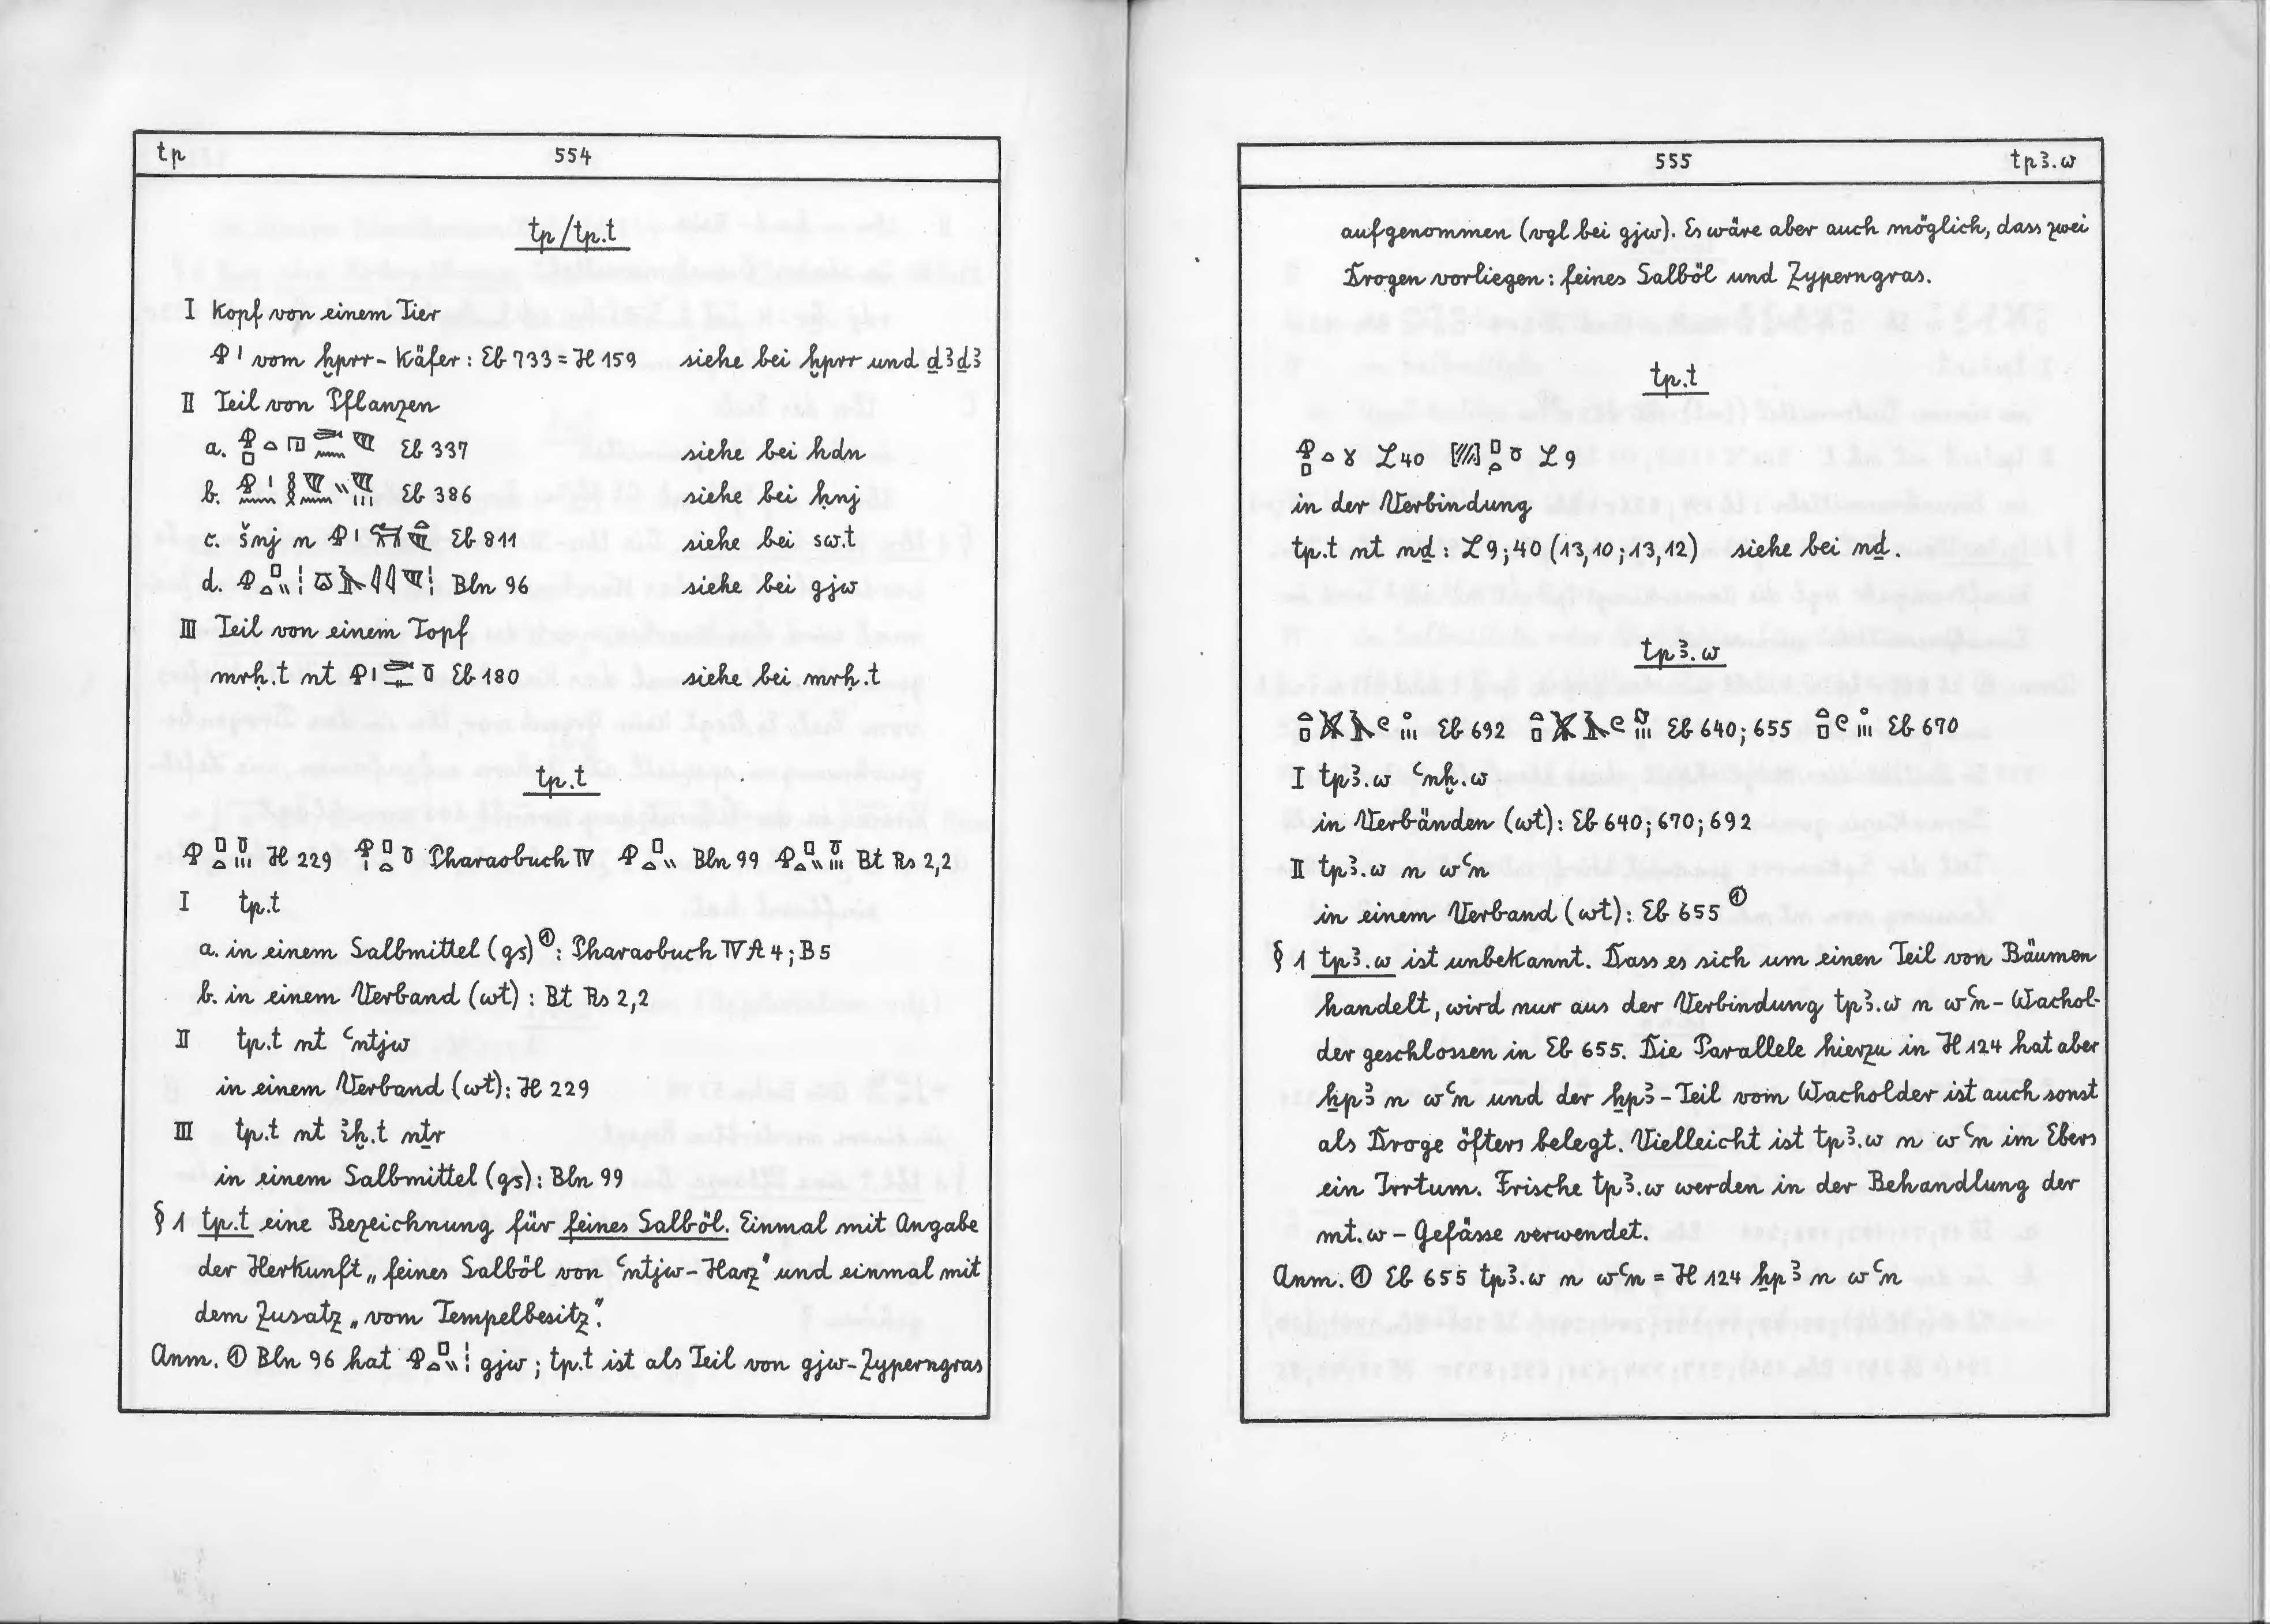 tp 554
tp/tp.t
I Kopf von einem Tier
𓁶𓏤 vom ḫprr-Käfer: Eb 733 = H 159 siehe bei ḫprr und ḏꜣḏꜣ
II Teil von Pflanzen
a. Eb 337 siehe bei hdn
b. Eb 386 siehe bei ḥnj
c. šnj n Eb 811 siehe bei sw.t
d. Bln 96 siehe bei gjw
III Teil von einem Topf
mrḥ.t nt Eb 180 siehe bei mrḥ.t
tp.t
H 229 Pharaobuch IV Bln 99 Bt Rs 2,2
I tp.t
a. in einem Salbmittel (gs)①: Pharaobuch IV A 4; B 5
b. in einem Verband (wt): Bt Rs 2,2
II tp.t nt ꜥntjw
in einem Verband (wt): H 229
III tp.t nt ꜣḫ.t nṯr
in einem Salbmittel (gs): Bln 99
§ 1 tp.t eine Bezeichnung für feines Salböl. Einmal mit Angabe
der Herkunft „feines Salböl von ꜥntjw-Harz" und einmal mit
dem Zusatz „vom Tempelbesitz".
Anm. ① Bln 96 hat gjw; tp.t ist als Teil von gjw-Zyperngras
555 tpꜣ.w
aufgenommen (vgl bei gjw). Es wäre aber auch möglich, dass zwei
Drogen vorliegen: feines Salböl und Zyperngras.
tp.t
L 40 L 9
in der Verbindung
tp.t nt nḏ: L 9; 40 (13,10; 13,12) siehe bei nḏ.
tpꜣ.w
Eb 692 Eb 640; 655 Eb 670
I tpꜣ.w ꜥnḫ.w
in Verbänden (wt): Eb 640; 670; 692
II tpꜣ.w n wꜥn
in einem Verband (wt): Eb 655①
§ 1 tpꜣ.w ist unbekannt. Dass es sich um einen Teil von Bäumen
handelt, wird nur aus der Verbindung tpꜣ.w n wꜥn-Wachol-
der geschlossen in Eb 655. Die Parallele hierzu in H 124 hat aber
ẖpꜣ n wꜥn und der ẖpꜣ-Teil vom Wacholder ist auch sonst
als Droge öfters belegt. Vielleicht ist tpꜣ.w n wꜥn im Ebers
ein Irrtum. Frische tpꜣ.w werden in der Behandlung der
mt.w-Gefässe verwendet.
Anm. ① Eb 655 tpꜣ.w n wꜥn = H 124 ẖpꜣ n wꜥn